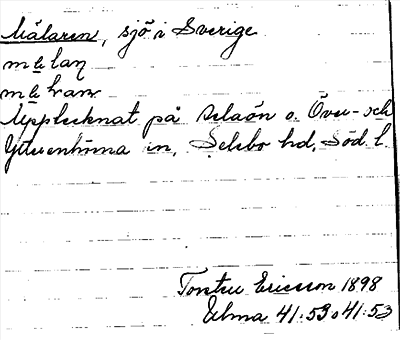 Mälaren, sjö i Sverige
Upptecknat på Selaön o. Över- och
Ytterenhörna sn, Selebo hd, Söd. l.
Torsten Ericsson 1898
Ulma 41:53 o 41:53